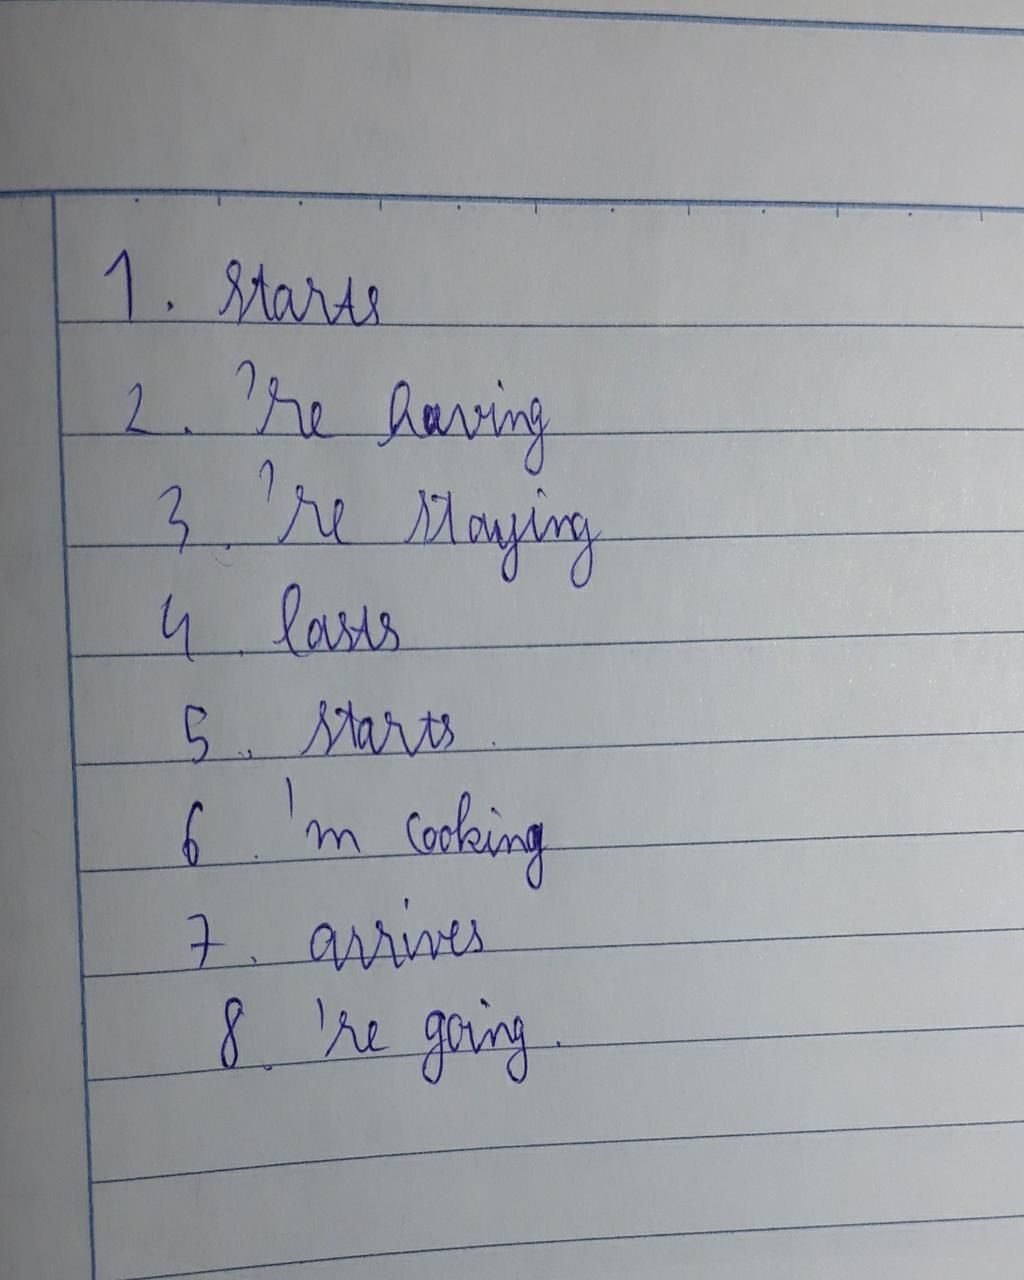 1. starts
2. 're having
3. 're staying
4. lasts
5. starts.
6. 'm cooking
7. arrives
8. 're going.